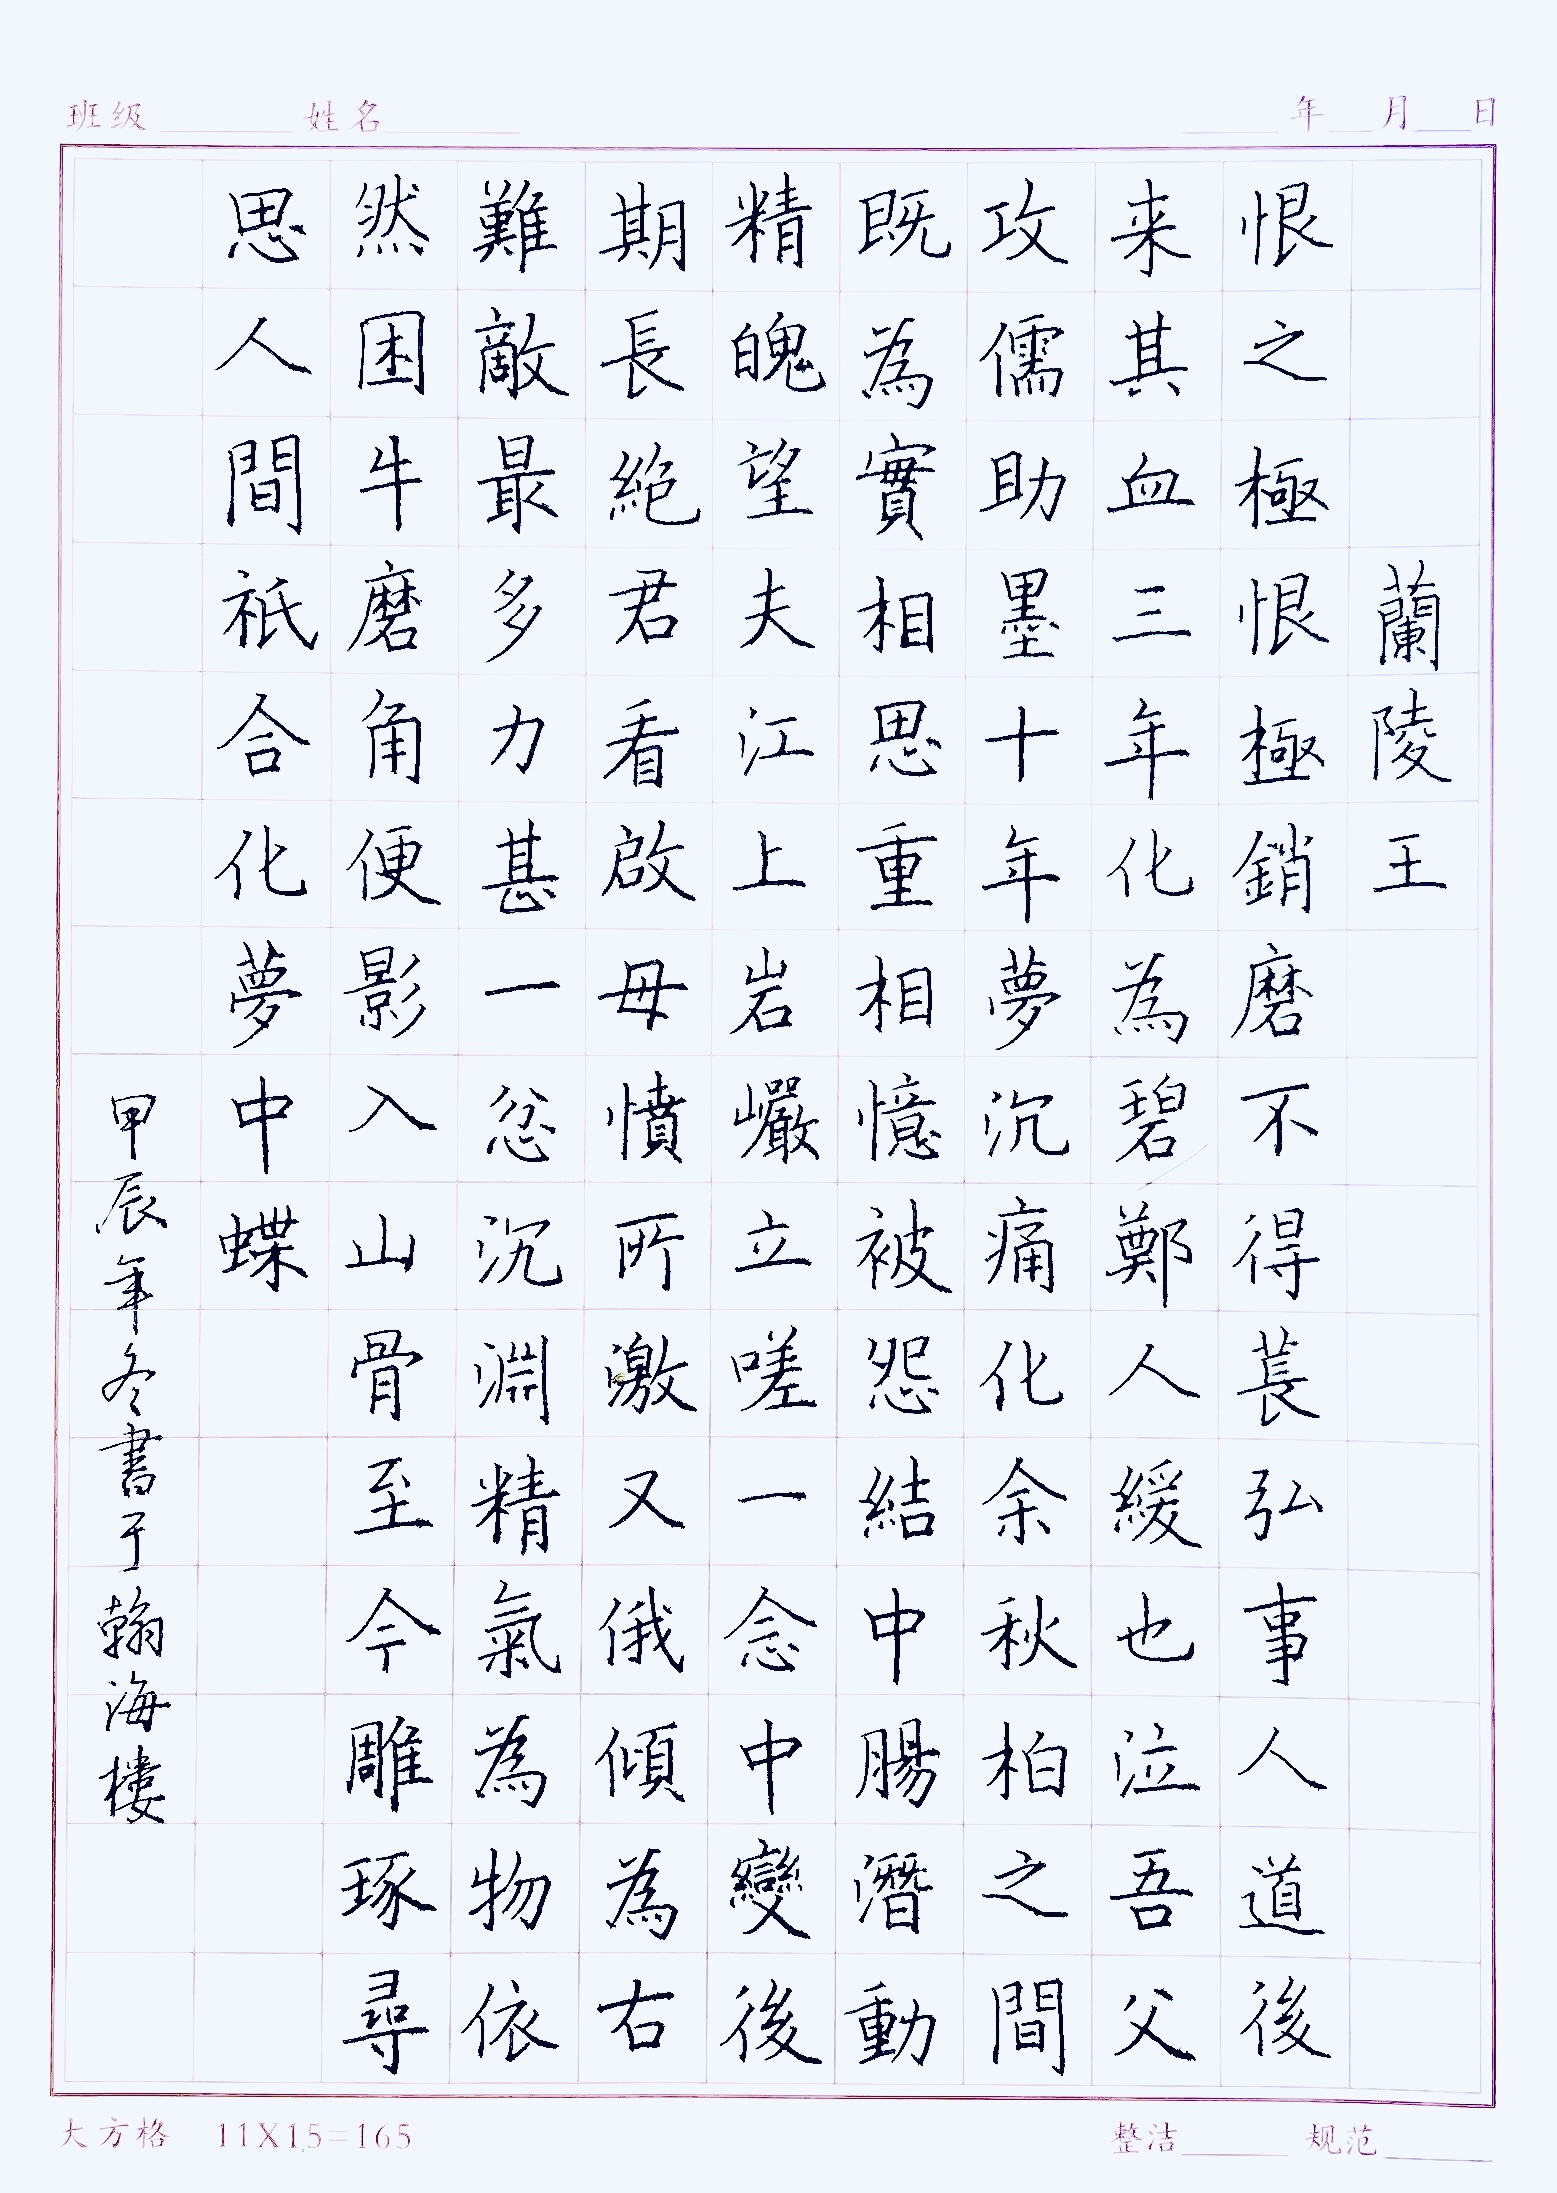 班级 姓名 年 月 日
蘭陵王
恨之極恨極銷磨不得萇弘事人道後
来其血三年化為碧鄭人緩也泣吾父
攻儒助墨十年夢沉痛化余秋柏之間
既為實相思重相憶被怨結中腸潛動
精魄望夫江上岩巗立嗟一念中變後
期長絕君看啟母憤所激又俄傾為右
難敵最多力甚一忿沉淵精氣為物依
然困牛磨角便影入山骨至今雕琢尋
思人間祇合化夢中蝶
甲辰年冬書于翰海樓
大方格 11X15=165 整洁 规范